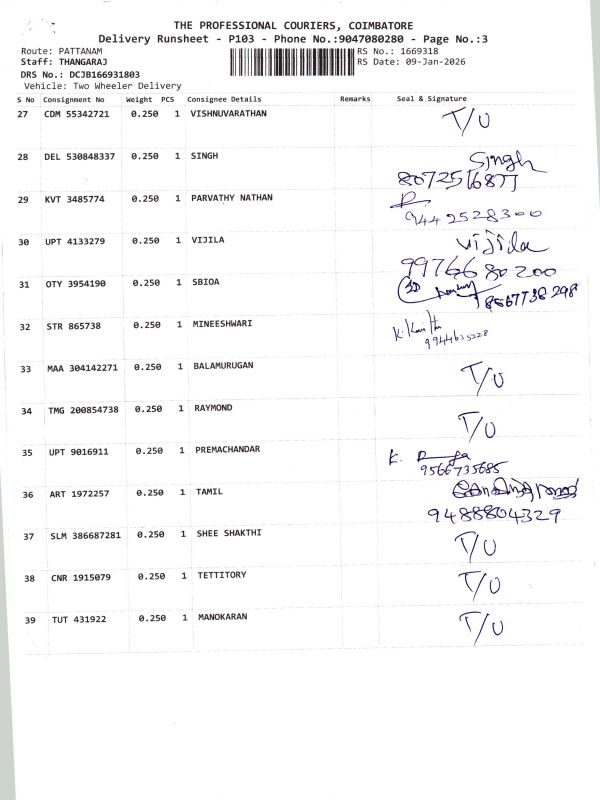 THE PROFESSIONAL COURIERS, COIMBATORE
Delivery Runsheet - P103 - Phone No.:9047080280 - Page No.:3
Route: PATTANAM RS No.: 1669318
Staff: THANGARAJ RS Date: 09-Jan-2026
DRS No.: DCJB166931803
Vehicle: Two Wheeler Delivery
S No Consignment No Weight PCS Consignee Details Remarks Seal & Signature
27 CDM 55342721 0.250 1 VISHNUVARATHAN T/U
28 DEL 530848337 0.250 1 SINGH Singh
8072516877
29 KVT 3485774 0.250 1 PARVATHY NATHAN
9442528300
30 UPT 4133279 0.250 1 VIJILA Vijila
9976680200
31 OTY 3954190 0.250 1 SBIOA
8667738298
32 STR 865738 0.250 1 MINEESHWARI
9944635228
33 MAA 304142271 0.250 1 BALAMURUGAN T/U
34 TMG 200854738 0.250 1 RAYMOND T/U
35 UPT 9016911 0.250 1 PREMACHANDAR K.
9566735685
36 ART 1972257 0.250 1 TAMIL
9488804329
37 SLM 386687281 0.250 1 SHEE SHAKTHI T/U
38 CNR 1915079 0.250 1 TETTITORY T/U
39 TUT 431922 0.250 1 MANOKARAN T/U